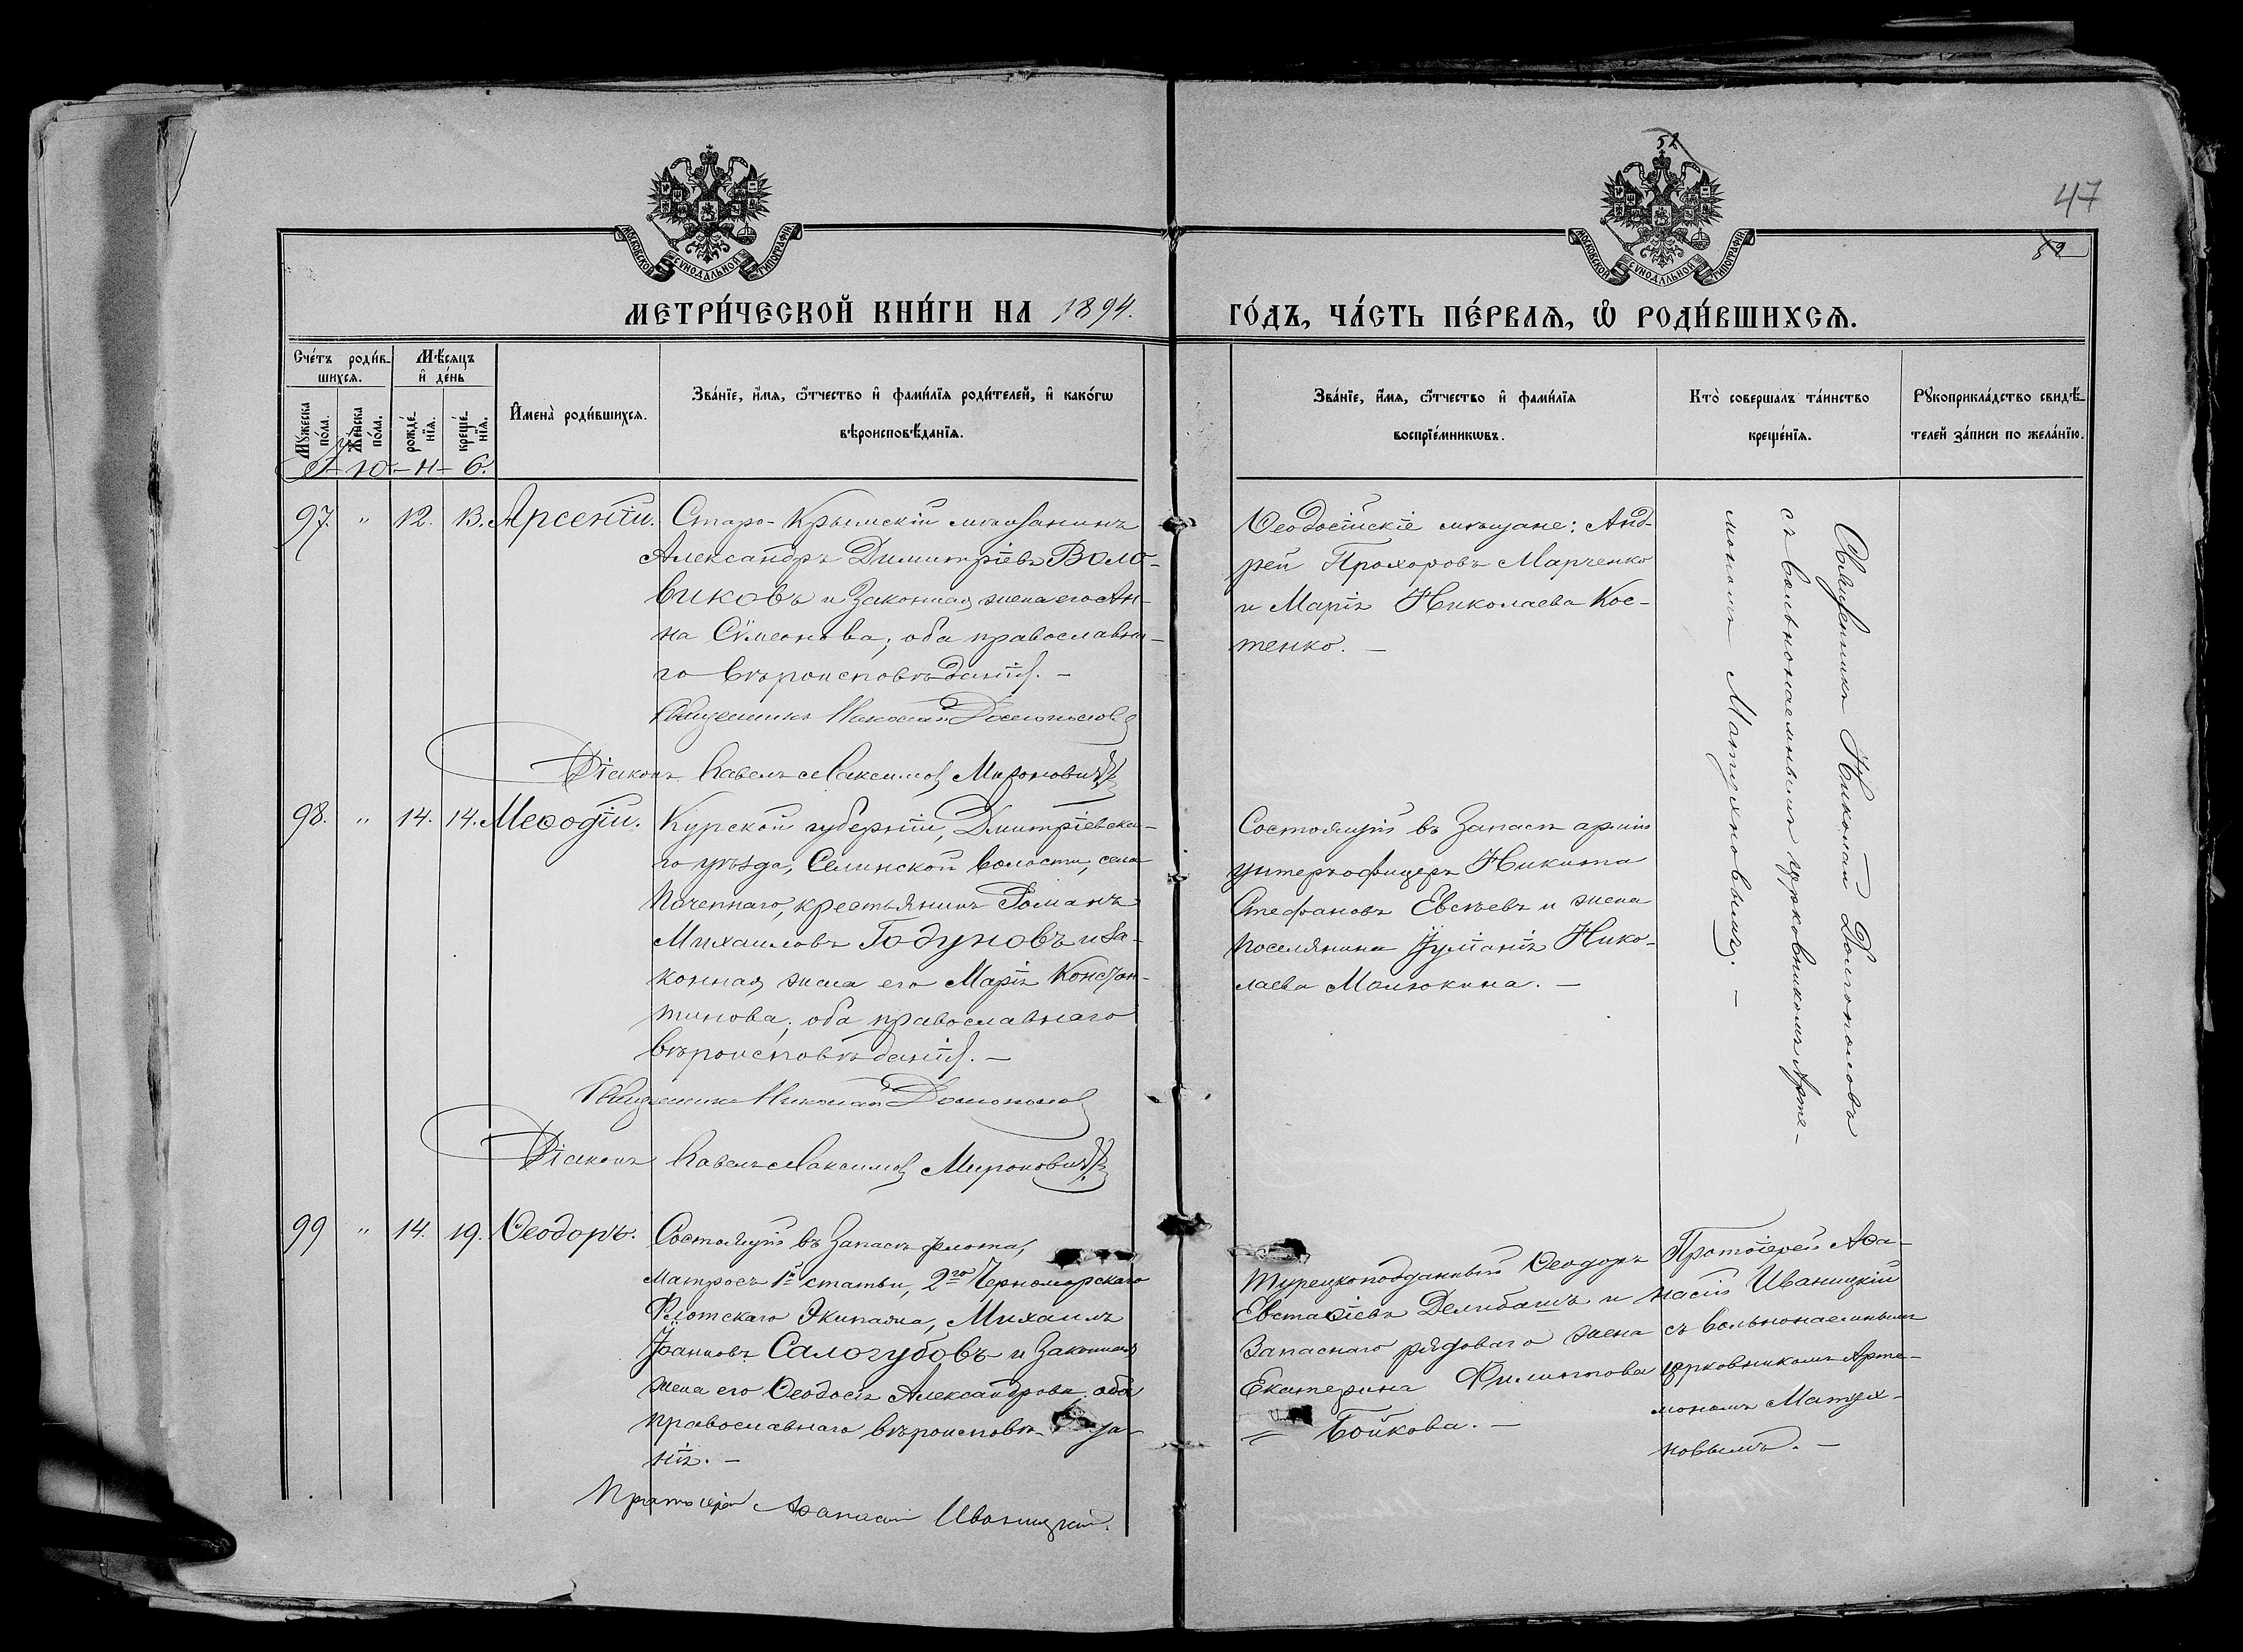 52
47
52
МОСКОВСКОЙ СУНОДАЛЬНОЙ ТИПОГРАФІИ
МОСКОВСКОЙ СУНОДАЛЬНОЙ ТИПОГРАФІИ
МЕТРИ́ЧЕСКОЙ КНИ́ГИ НА 1894.
ГО́ДЪ, ЧА́СТЬ ПЕ́РВАѦ, Ѡ РОДИ́ВШИХСѦ.
Сче́тъ роди́в-
шихсѧ.
Мꙋжеска по́ла.
Же́нска по́ла.
Мѣ́сѧцъ
и҆ де́нь
рожде́-
нїѧ.
креще́-
нїѧ.
И҆мена̀ роди́вшихсѧ.
Зва́нїе, и҆́мѧ, ѻ҆́тчество и҆ фами́лїѧ роди́телей, и҆ како́гѡ
вѣроисповѣ́данїѧ.
Зва́нїе, и҆́мѧ, ѻ҆́тчество и҆ фами́лїѧ
воспрїе́мникѡвъ.
Кто̀ совершалъ та́инство
креще́нїѧ.
Рꙋкоприкла́дство свидѣ́-
телей за́писи по жела́нїю.
97. " 12. 13. Арсеній.
Старо-Крымскій мѣщанинъ
Александръ Димитріевъ Воло-
виковъ и законная жена его Ан-
на Сѵмеонова; оба православна-
го вѣроисповѣданія. —
Священникъ Николай Долгополовъ
Діаконъ Павелъ Максимов Миронович
Ѳеодосійскіе мѣщане: Анд-
рей Прохоровъ Марченко
и Марія Николаева Кос-
тенко. —
Священникъ Николай Долгополовъ
съ вольнонаемнымъ церковникомъ Арте-
мономъ Матухновымъ. —
98. " 14. 14. Меѳодій.
Курской губерніи, Дмитріевска-
го уѣзда, Селинской волости, села
Почепнаго, крестьянинъ Романъ
Михаиловъ Годуновъ и за-
конная жена его Марія Констан-
тинова; оба православнаго
вѣроисповѣданія. —
Священникъ Николай Долгополов
Діаконъ Павелъ Максимов Миронович
Состоящій въ запасѣ арміи
унтеръ-офицеръ Никита
Стефановъ Евсѣевъ и жена
поселянина Іуліанія Нико-
лаева Малюкина. —
99 " 14. 19. Ѳеодоръ.
Состоящій въ запасѣ флота,
матросъ 1й статьи, 2го Черноморскаго
Флотскаго Экипажа, Михаилъ
Іоанновъ Салогубовъ и законная
жена его Ѳеодосія Александрова оба
православнаго вѣроисповѣ- да-
нія. —
Протоіерей Аѳанасій Иваницкій.
Турецкоподданный Ѳеодоръ
Евстаѳіевъ Делибашъ и
запаснаго рядоваго жена
Екатерина Филиппова
= Бойкова. —
Протоіерей Аѳа-
насій Иваницкій
съ вольнонаемнымъ
церковникомъ Арте-
мономъ Матух-
новымъ. —